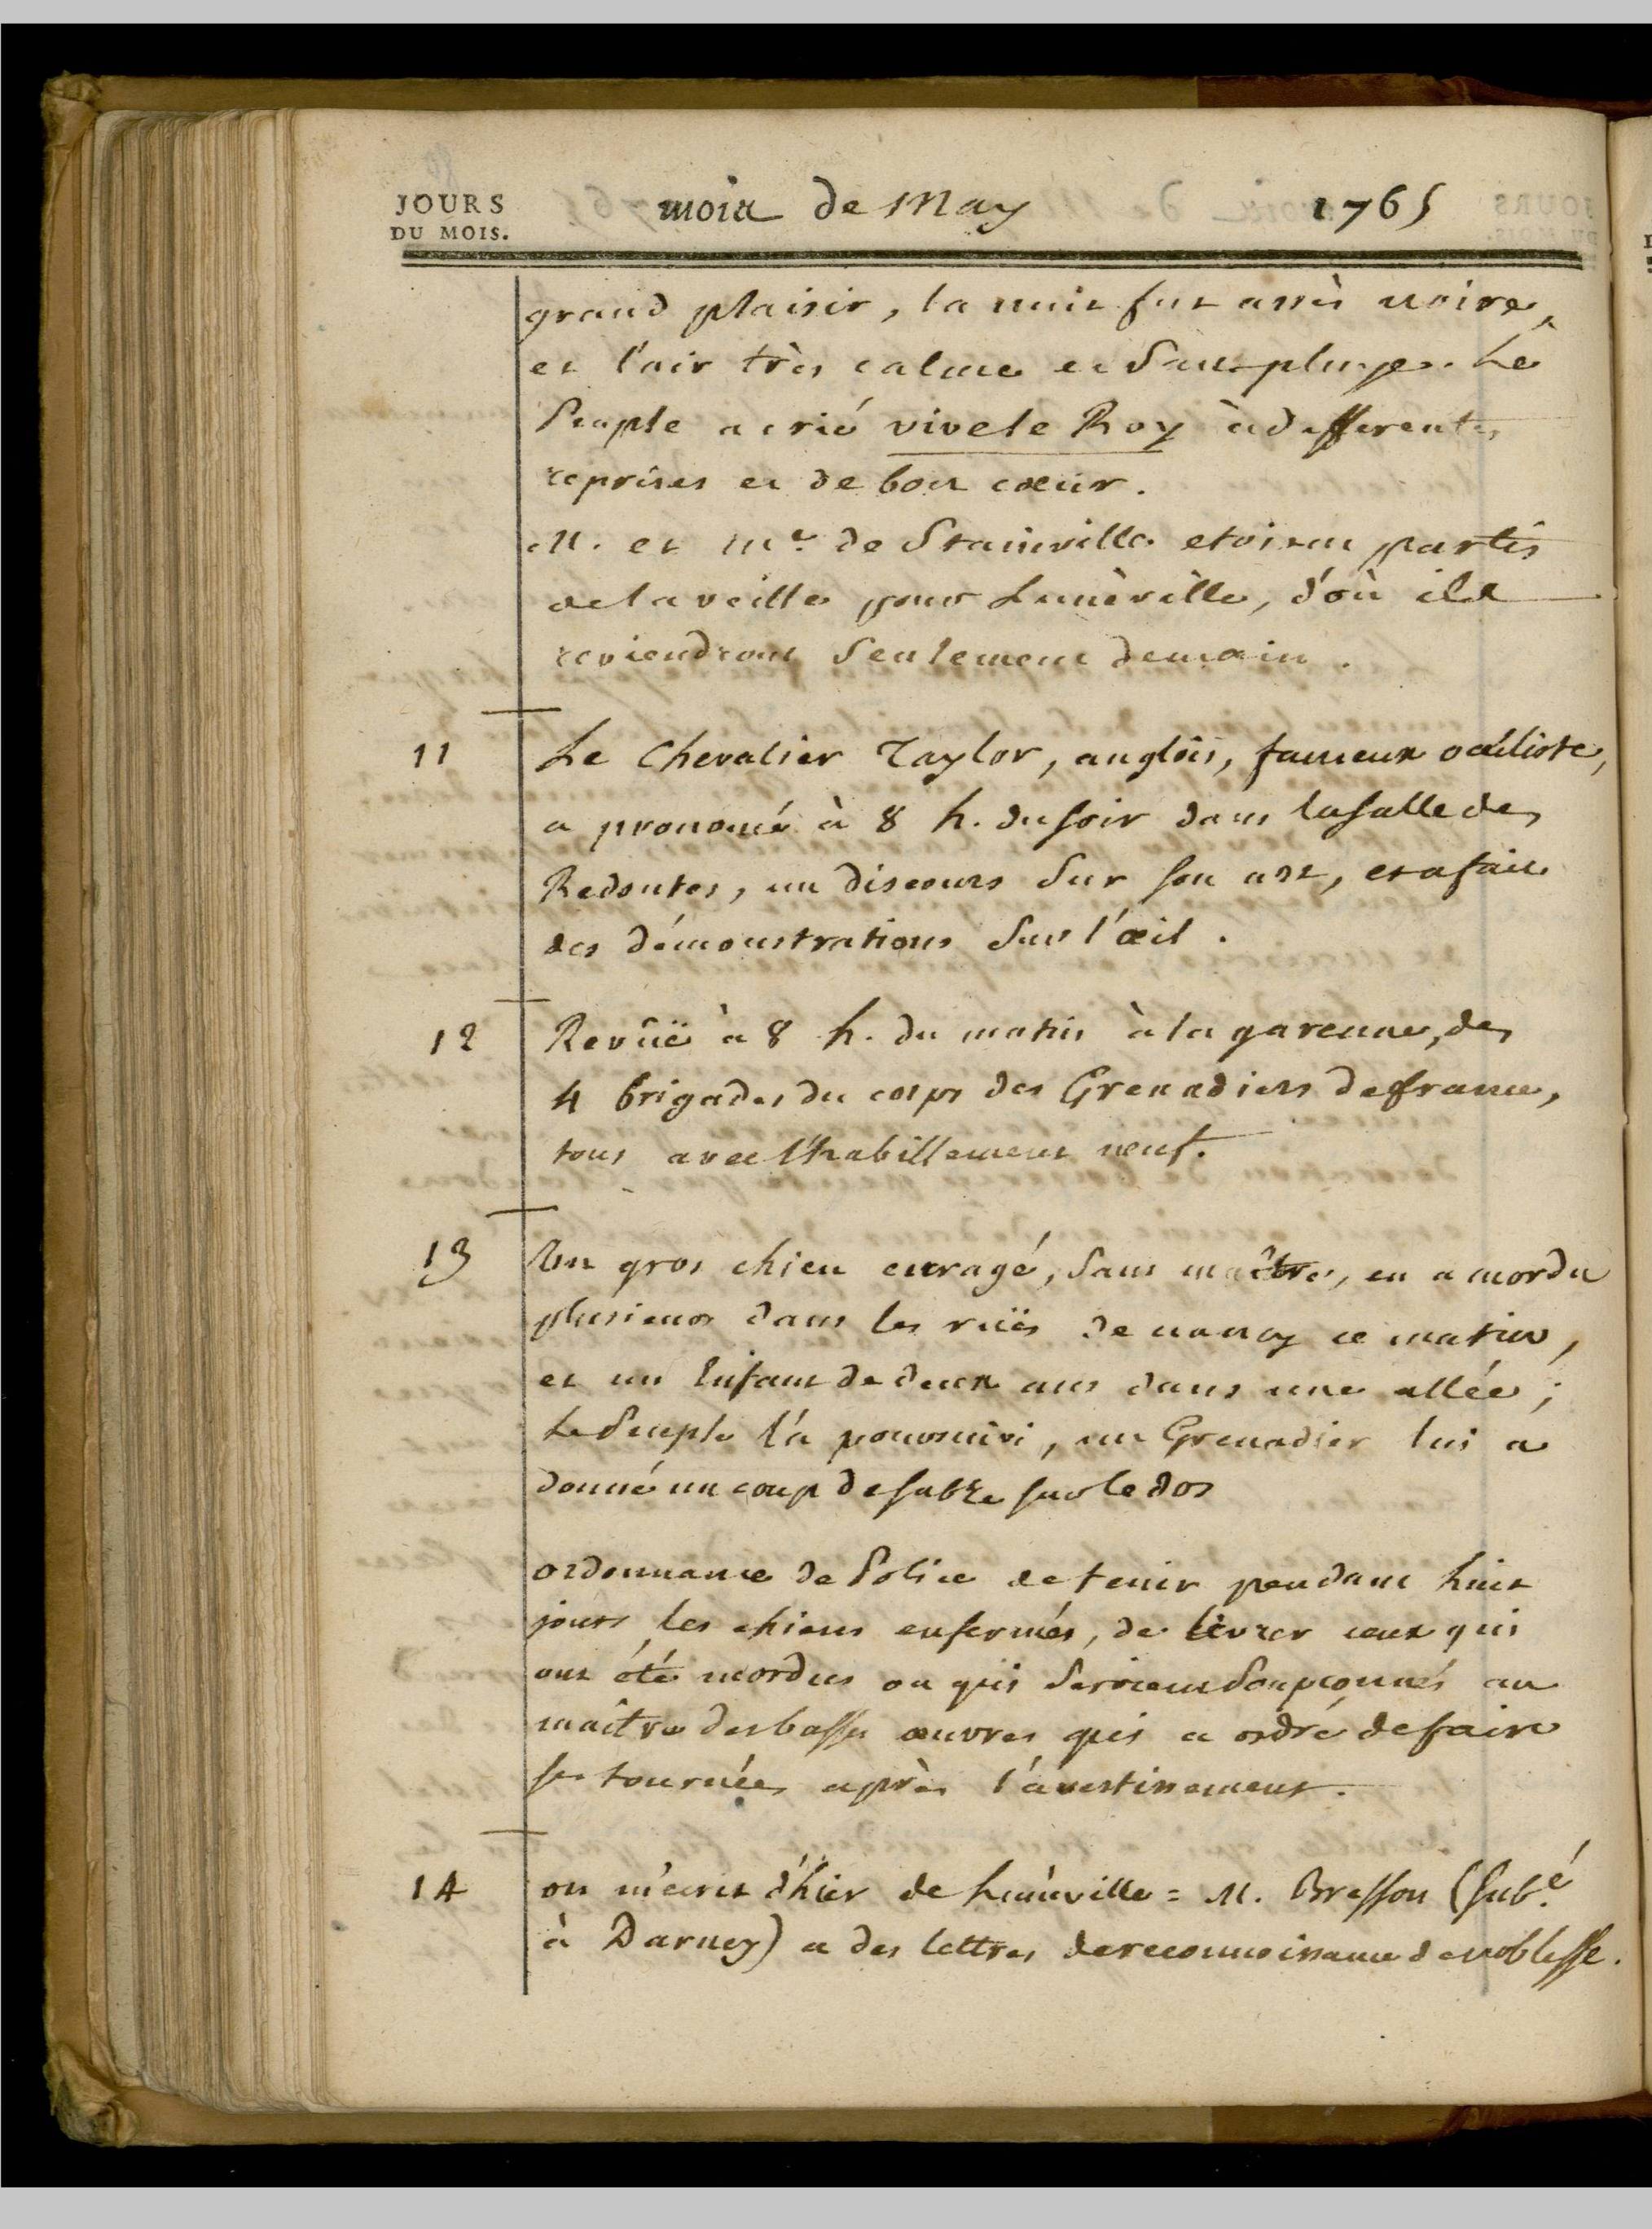 JOURS
DU MOIS.
mois de May 1765
grand plaisir, la nuit fut assès noire,
et l'air très calme et sans pluye. Le
Peuple a crié vive le Roy à differentes
reprises et de bon cœur.
M. et Me. de Stainville etoient partis
de la veille pour Lunèville, d'où ils
reviendront seulement demain.
11 Le Chevalier Taylor, anglois, fameux oculiste,
a prononcé à 8 h. du soir dans la salle des
Redoutes, un discours sur son art, et a fait
des démonstrations sur l'œil.
12 Revüe à 8 h. du matin à la garenne, des
4 brigades du corps des Grenadiers de france,
tous avec l'habillement neuf.
13 Un gros chien enragé, sans maître, en a mordu
plusieurs dans les rües de nancy ce matin,
et un Enfant de deux ans dans une allée;
Le Peuple l'a poursuivi, un Grenadier lui a
donné un coup de sabre sur le dos
ordonnance de Police de tenir pendant huit
jours les chiens enfermés, de livrer ceux qui
ont été mordus ou qui seroient soupçonnés au
maître des basses œuvres qui a ordre de faire
ses tournées après l'avertissement.
14 on m'écrit d'hier de Lunèville = M. Bresson (subé.
à Darney) a des lettres de reconnoissance de noblesse.